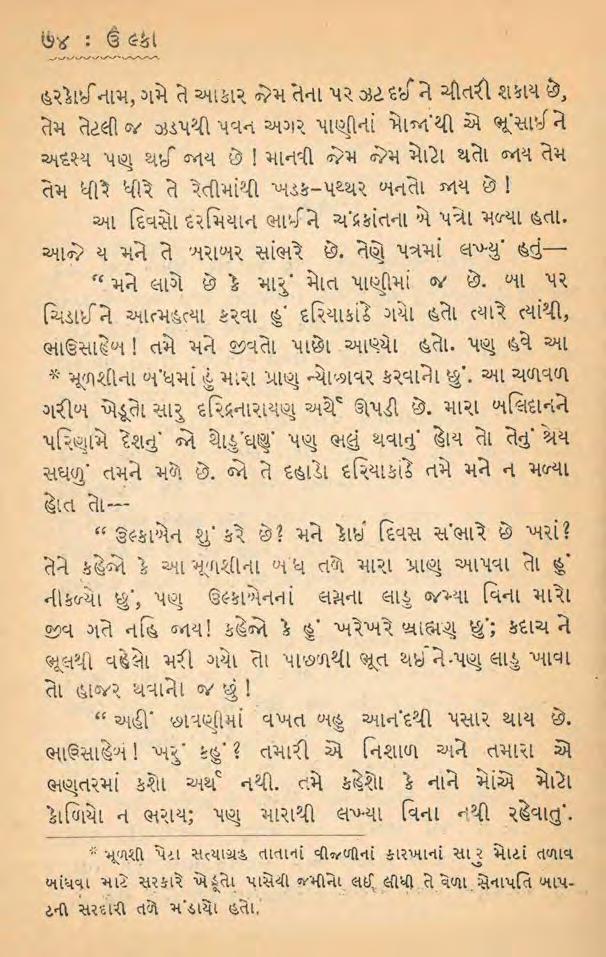 ૭૪ : ઉલ્કા
હરકોઈ નામ, ગમે તે આકાર જેમ તેના પર ઝટ દઈ ને ચીતરી શકાય છે,
તેમ તેટલી જ ઝડપથી પવન અગર પાણીનાં મોજાંથી એ ભૂંસાઈ ને
અદૃશ્ય પણ થઈ જાય છે ! માનવી જેમ જેમ મોટો થતો જાય તેમ
તેમ ધીરે ધીરે તે રેતીમાંથી ખડક–પથ્થર બનતો જાય છે !
આ દિવસો દરમિયાન ભાઈને ચંદ્રકાંતના બે પત્રો મળ્યા હતા.
આજે ય મને તે બરાબર સાંભરે છે. તેણે પત્રમાં લખ્યું હતું—
“ મને લાગે છે કે મારું મોત પાણીમાં જ છે. બા પર
ચિડાઈને આત્મહત્યા કરવા હું દરિયાકાંઠે ગયો હતો ત્યારે ત્યાંથી,
ભાઉસાહેબ ! તમે મને જીવતો પાછો આણ્યો હતો. પણ હવે આ
* મૂળશીના બંધમાં હું મારા પ્રાણ ન્યોછાવર કરવાનો છું. આ ચળવળ
ગરીબ ખેડૂતો સારુ દરિદ્રનારાયણ અર્થે ઊપડી છે. મારા બલિદાનને
પરિણામે દેશનું જો થોડુંઘણું પણ ભલું થવાનું હોય તો તેનું શ્રેય
સઘળું તમને મળે છે. જો તે દહાડો દરિયાકાંઠે તમે મને ન મળ્યા
હોત તો—
“ ઉલ્કાબેન શું કરે છે? મને કોઈ દિવસ સંભારે છે ખરાં?
તેને કહેજો કે આ મૂળશીના બંધ તળે મારા પ્રાણ આપવા તો હું
નીકળ્યો છું, પણ ઉલ્કાબેનનાં લગ્નના લાડુ જમ્યા વિના મારો
જીવ ગતે નહિ જાય! કહેજો કે હું ખરેખરે બ્રાહ્મણ છું; કદાચ ને
ભૂલથી વહેલો મરી ગયો તો પાછળથી ભૂત થઈને-પણ લાડુ ખાવા
તો હાજર થવાનો જ છું !
“ અહીં છાવણીમાં વખત બહુ આનંદથી પસાર થાય છે.
ભાઉસાહેબ ! ખરું કહું ? તમારી એ નિશાળ અને તમારા એ
ભણતરમાં કશો અર્થ નથી. તમે કહેશો કે નાને મોંએ મોટો
કોળિયો ન ભરાય; પણ મારાથી લખ્યા વિના નથી રહેવાતું.
* મૂળશી પેટા સત્યાગ્રહ તાતાનાં વીજળીનાં કારખાનાં સારુ મોટાં તળાવ
બાંધવા માટે સરકારે ખેડૂતો પાસેથી જમીનો લઈ લીધી તે વેળા સેનાપતિ બાપ-
ટની સરદારી તળે મંડાયો હતો.